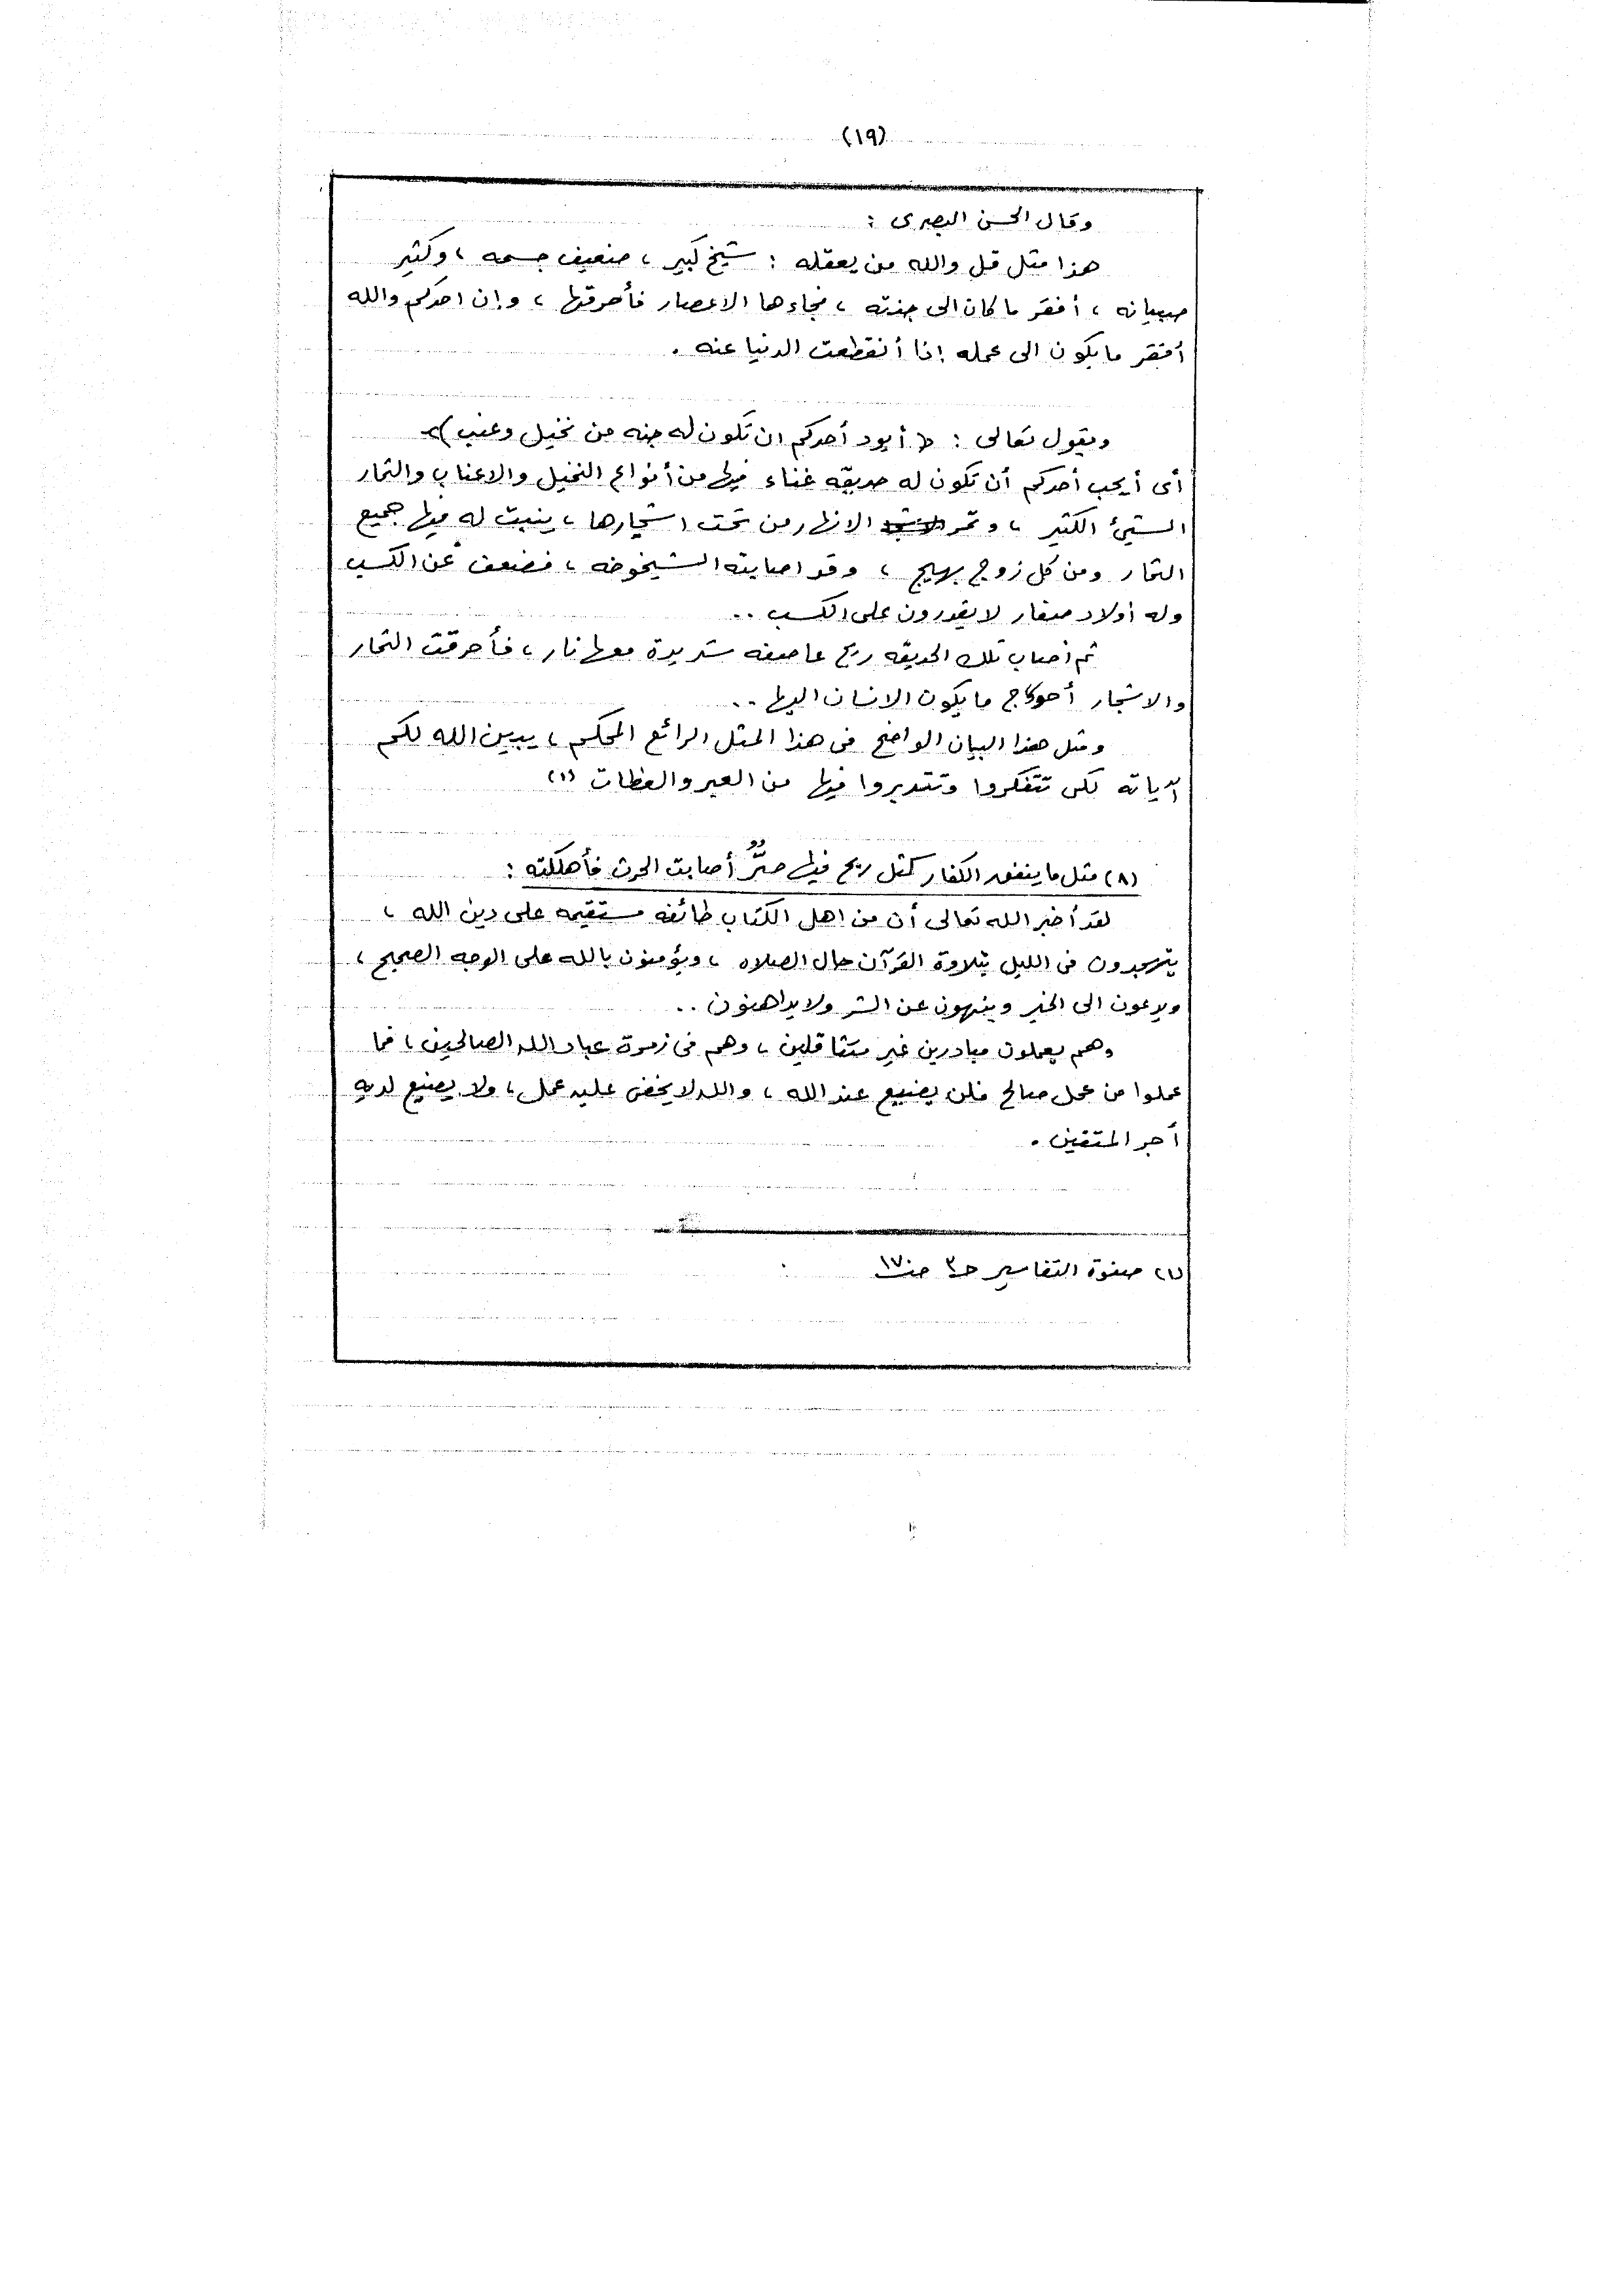 (١٩)
وقال الحسن البصرى :
هذا مثل قل والله من يعقله : شيخ كبير ، ضعيف جسمه ، وكثير
صبيانه ، أفقر ما كان الى جنته ، فجاءها الاعصار فأحرقها ، وإن احدكم والله
أفقر ما يكون الى عمله إذا أنقطعت الدنيا عنه .
ويقول تعالى : ( أيود أحدكم ان تكون له جنه من نخيل وعنب )
أى أيحب أحدكم أن تكون له حديقه غناء فيها من أنواع النخيل والاعناب والثمار
الشيئ الكثير ، وتمر الانهار من تحت اشجارها ، ينبت له فيها جميع
الثمار ومن كل زوج بهيج ، وقد اصابته الشيخوخه ، فضعف عن الكسب
وله أولاد صغار لا يقدرون على الكسب ..
ثم أصاب تلك الحديقه ريح عاصفه شديدة معها نار ، فأحرقت الثمار
والاشجار أحوج ما يكون الانسان اليها ..
ومثل هذا البيان الواضح فى هذا المثل الرائع المحكم ، يبين الله لكم
آياته لكى تتفكروا وتتدبروا فيها من العبر والعظات (١)
(٨) مثل ما ينفق الكفار كمثل ريح فيها صرٌّ أصابت الحرث فأهلكته :
لقد أخبر الله تعالى أن من اهل الكتاب طائفه مستقيمه على دين الله ،
يتهجدون فى الليل بتلاوة القرآن حال الصلاه ، ويؤمنون بالله على الوجه الصحيح ،
ويدعون الى الخير وينهون عن الشر ولا يداهنون ..
وهم يعملون مبادرين غير متثاقلين ، وهم فى زمرة عباد الله الصالحين ، فما
عملوا من عمل صالح فلن يضيع عند الله ، والله لا يخفى عليه عمل ، ولا يضيع لديه
أجر المتقين .
(١) صفوة التفاسير حـ٣ صـ١٧